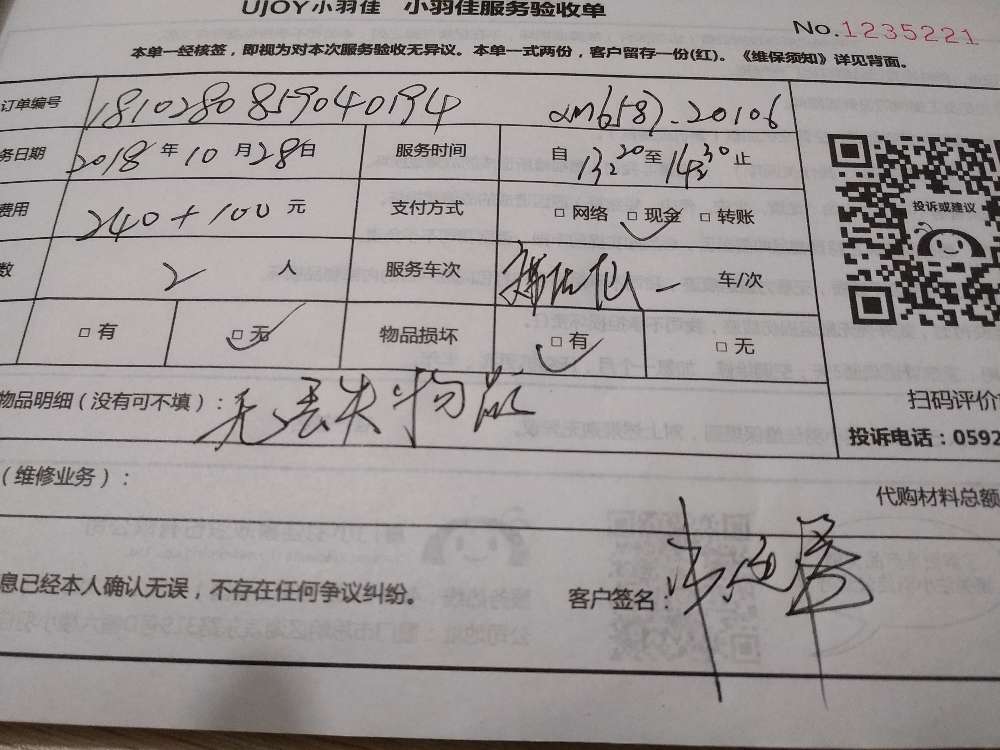 UJOY小羽佳 小羽佳服务验收单
No.1235221
本单一经核签，即视为对本次服务验收无异议。本单一式两份，客户留存一份(红)。《维保须知》详见背面。
订单编号 1810280859040194
务日期 2018年10月28日 服务时间 自13:20至14:30止
费用 240+100元 支付方式 □网络 □现金 □转账
数 2人 服务车次 车/次
□有 □无 物品损坏 □有 □无
投诉或建议
物品明细（没有可不填）： 无丢失物品
扫码评价
投诉电话：0592
（维修业务）：
代购材料总额
息已经本人确认无误，不存在任何争议纠纷。 客户签名：